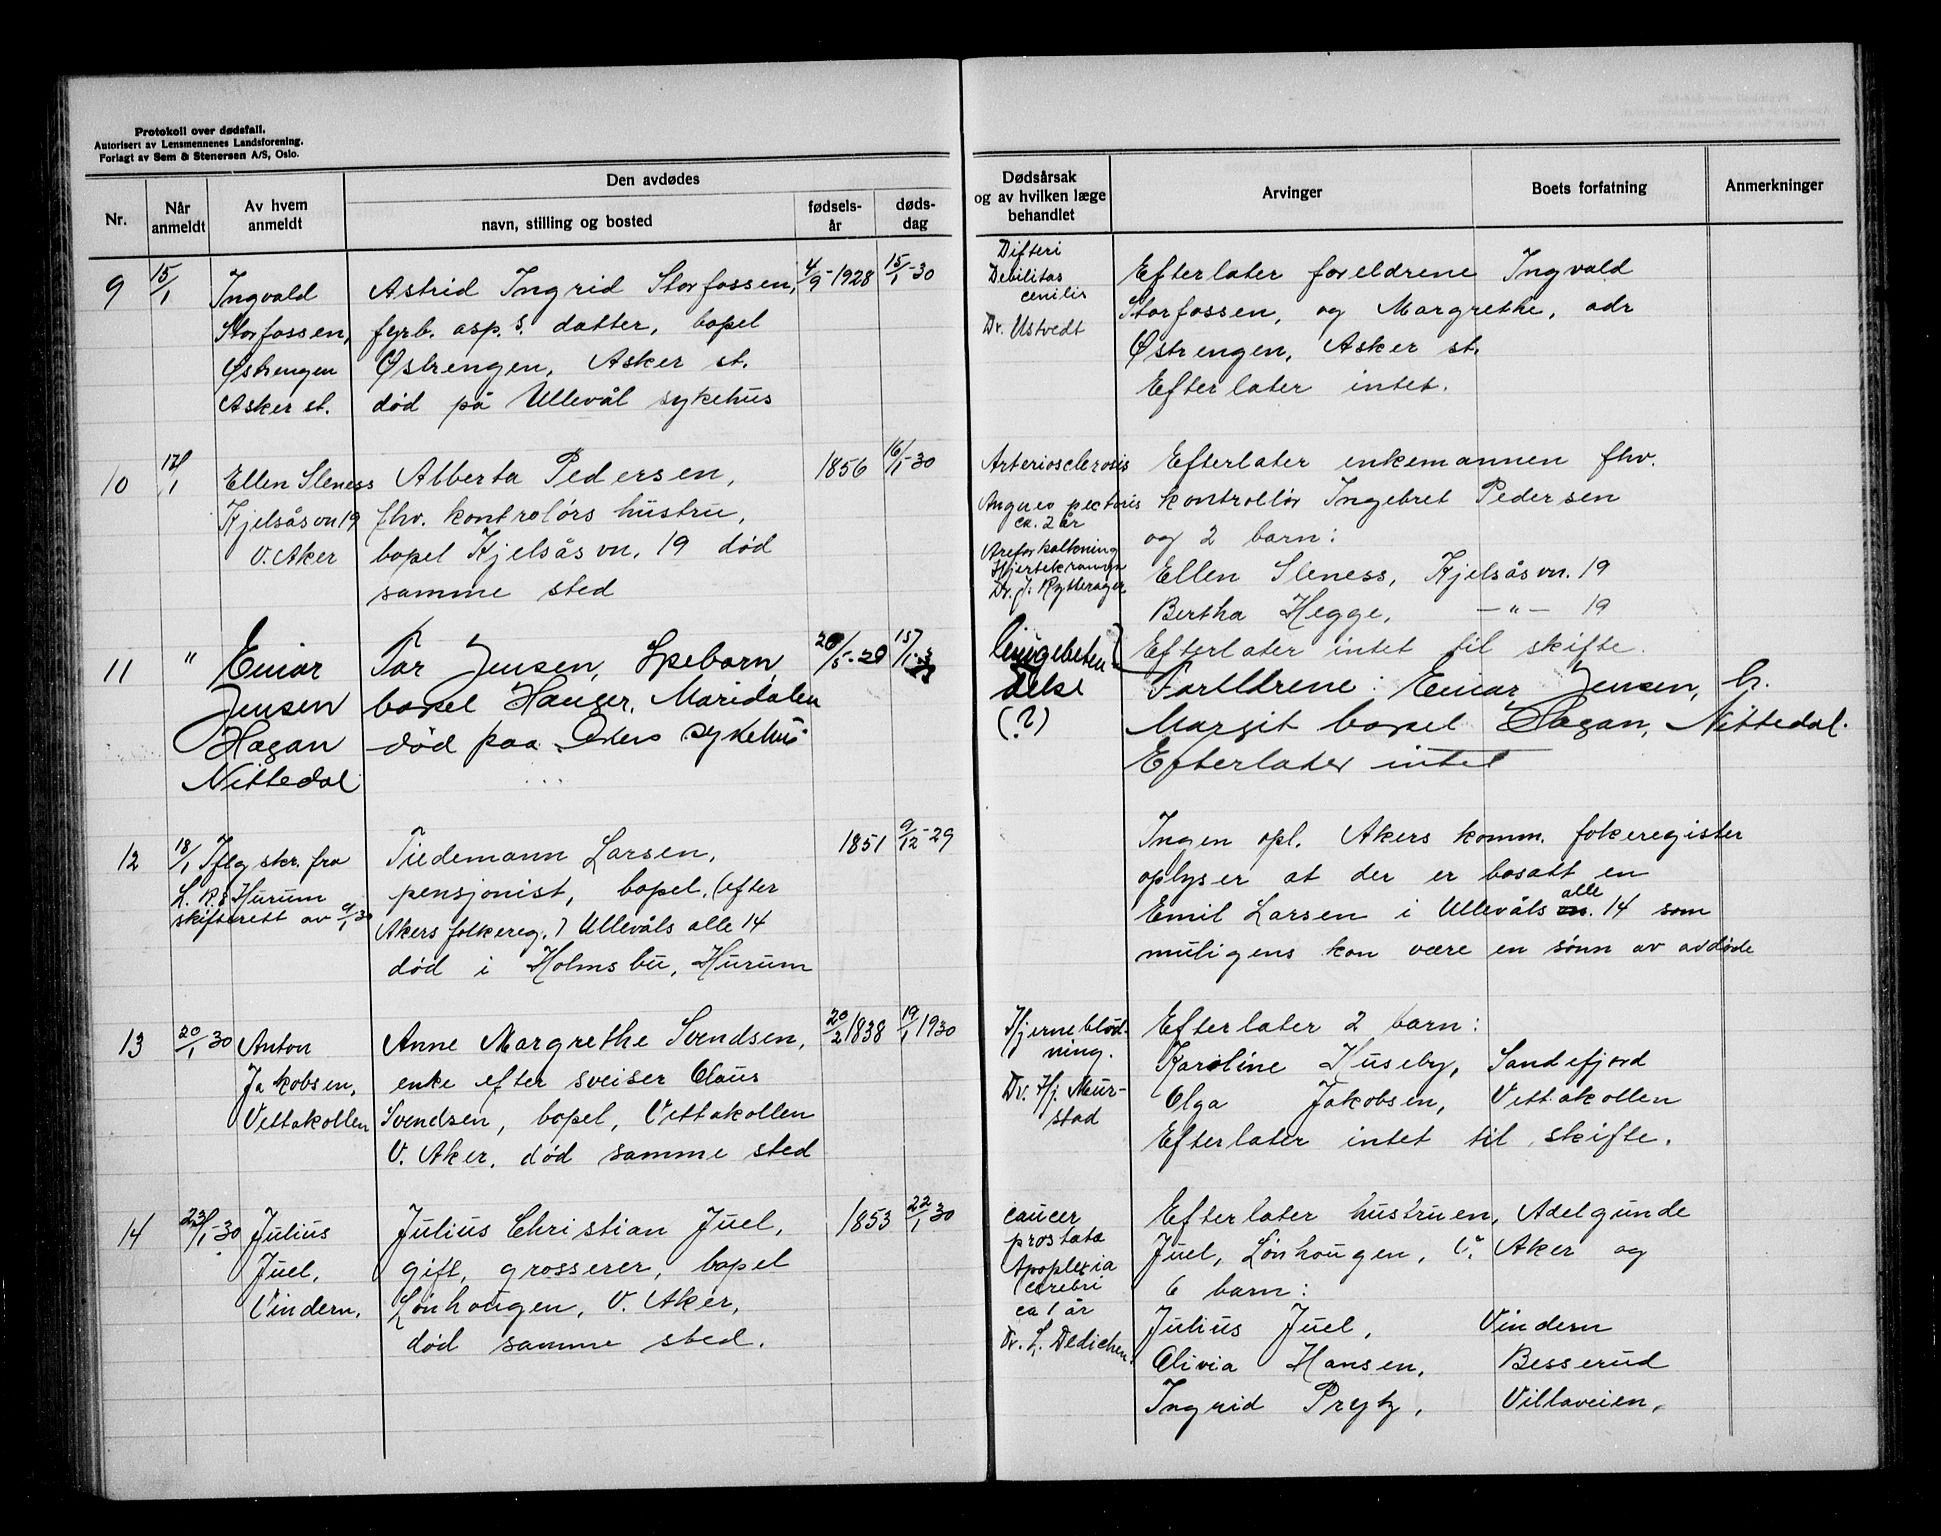 Protokoll over dødsfall.
Autorisert av Lensmennenes Landsforening.
Forlagt av Sem & Stenersen A/S, Oslo.
Nr.
Når anmeldt
Av hvem anmeldt
Den avdødes
navn, stilling og bosted
fødsels-år
døds-dag
Dødsårsak
og av hvilken læge
behandlet
Arvinger
Boets forfatning
Anmerkninger
9
15/1
Ingvald
Storfossen,
Østrengen
Asker st.
Astrid Ingrid Storfossen,
fyrb. asp. s. datter, bopel
Østrengen, Asker st.
død på Ullevål sykehus
4/9-1928
15/1-30
Difteri
Debilitas
cenilis
Dr. Ustvedt
Efterlater foreldrene Ingvald
Storfossen, og Margrethe, adr
Østrengen, Asker st.
Efterlater intet.
10
17/1
Ellen Sleness
Kjelsåsvn 19
V. Aker
Alberta Pedersen,
fhv. kontrolørs hustru,
bopel Kjelsåsvn. 19 død
samme sted
1856
16/1-30
Arteriosclerosis
pectoris
ca. 2 år
Areforkalkning
Hjertekrampe
Dr. J. Rytterager
Efterlater enkemannen fhv.
kontrollør Ingebret Pedersen
og 2 barn:
Ellen Sleness, Kjelsåsvn. 19
Bertha Hegge, -"- 19
Efterlater intet til skifte.
11
"
Einar
Jensen
Hagan
Nittedal
Tor Jensen, Spebarn
bopel Hauger, Maridalen
død paa Oslo sykehus
20/5-29
15/1-30
lungebeten-
delse
(?)
Foreldrene: Einar Jensen, h.
Margit bopel Hagan, Nittedal.
Efterlater intet
12
18/1
Iflg skr. fra
L. R. & Hurum
skifterett av 9/1 30
Tiedemann Larsen,
pensjonist, bopel, (efter
Akers folkereg.) Ullevåls alle 14
død i Holmsbu, Hurum
1851
9/12-29
Ingen opl. Akers komm. fokeregister
oplyser at der er bosatt en
alle
Emil Larsen i Ullevåls vn. 14 som
muligens kan være en sønn av avdøde
13
20/1-30
Anton
Jakobsen,
Vettakollen
Anne Margrethe Svendsen,
enke efter sveiser Claus
Svendsen, bopel, Vettakollen
V. Aker. død samme sted
20/2 1838
19/1 1930
Hjerneblød-
ning.
Dr. Hj. Mur-
stad
Efterlater 2 barn:
Karoline Huseby, Sandefjord
Olga Jakobsen, Vettakollen
Efterlater intet til skifte.
14
23/1-30
Julius
Juel,
Vindern,
Julius Christian Juel,
gift, grosserer, bopel
Lønhaugen, V. Aker,
død samme sted.
1853
22/1 30
cancer
prostata
Apoplexia
cerebri
ca 1 år
Dr. L. Dedichen.
Efterlater hustruen, Adelgunde
Juel, Lønhougen, V. Aker og
6 barn:
Julius Juel, Vindern
Olivia Hansen, Besserud
Ingrid Prytz, Villaveien,